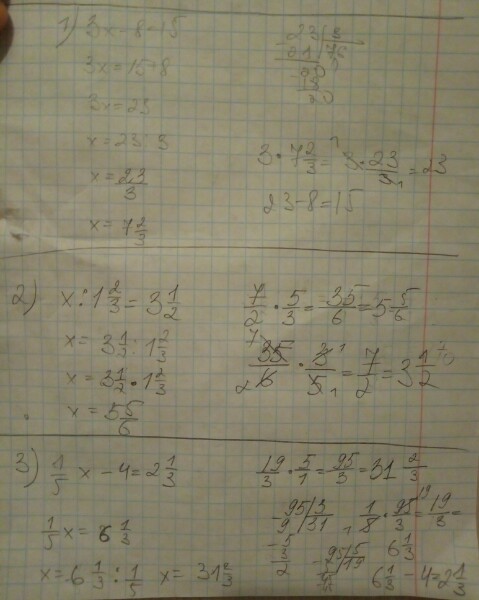 1) 3x - 8 = 15
3x = 15 + 8
3x = 23
x = 23 : 3
x = 23/3
x = 7 2/3
3 · 7 2/3 = 3 · 23/3 = 23
23 - 8 = 15
2) x : 1 2/3 = 3 1/2
x = 3 1/2 : 1 2/3
x = 3 1/2 · 1 2/3
x = 5 5/6
7/2 · 5/3 = 35/6 = 5 5/6
35/6 · 3/5 = 7/2 = 3 1/2
3) 1/5 x - 4 = 2 1/3
1/5 x = 6 1/3
x = 6 1/3 : 1/5 x = 31 2/3
19/3 · 5/1 = 95/3 = 31 2/3
95 | 3
9 | 31
5
3
2
1/5 · 95/3 = 19/3 =
6 1/3
95 | 5
5 | 19
6 1/3 - 4 = 2 1/3